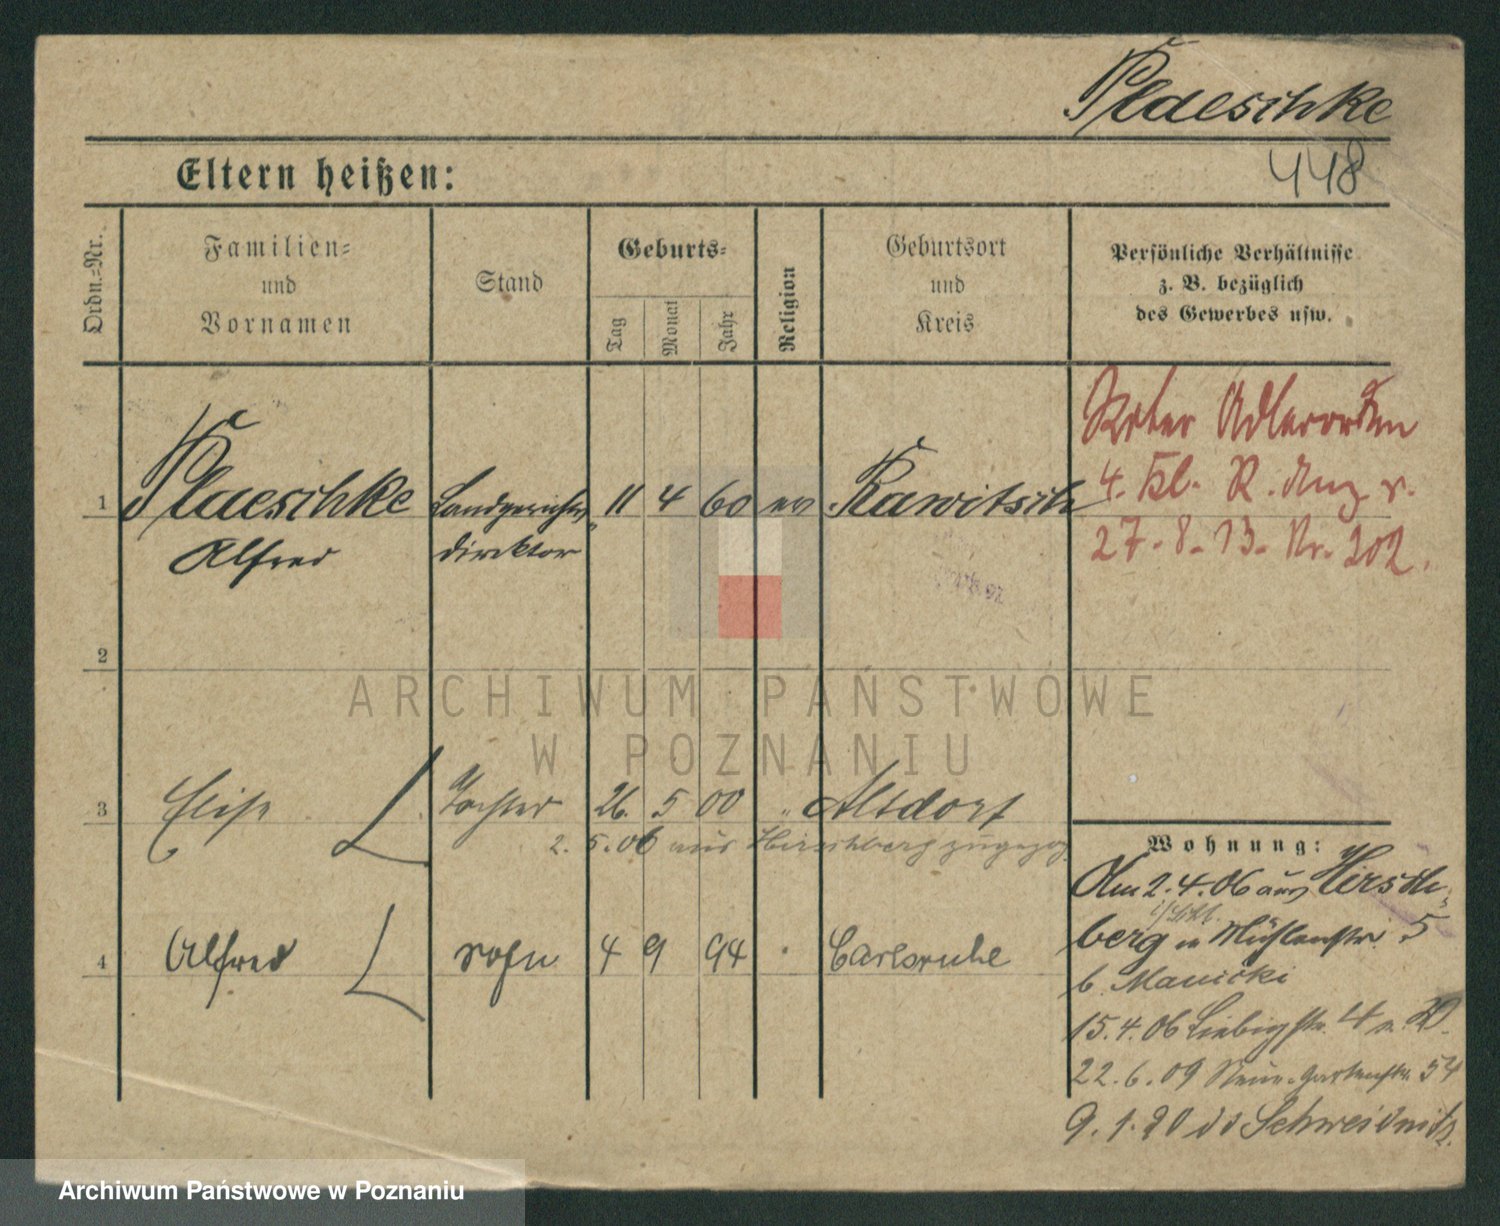 Plaeschke
448
Eltern heißen:
Ordn.-Nr.
Familien-
und
Vornamen
Stand
Geburts-
Tag
Monat
Jahr
Religion
Geburtsort
und
Kreis
Persönliche Verhältnisse
z. B. bezüglich
des Gewerbes usw.
1 Plaeschke Landgerichts- 11 4 60 ev Rawitsch
Alfred direktor
Roter Adlerorden
4. Kl. R. Anz. v.
27.8.13. Nr. 202.
2
ARCHIWUM PAŃSTWOWE
W POZNANIU
3 Elise Tochter 26. 5 00 " Altdorf
2. 5. 06 aus Hirschberg zugezog
4 Alfred Sohn 4 9 94 " Carlsruhe
Wohnung:
Am 2.4.06 aus Hirsch-
i/Schl.
berg n Mühlenstr. 5
b. Manicki
15.4.06 Liebigstr. 4 n.
22.6.09 Neue Gartenstr. 54
9.1.20 Schweidnitz
Archiwum Państwowe w Poznaniu